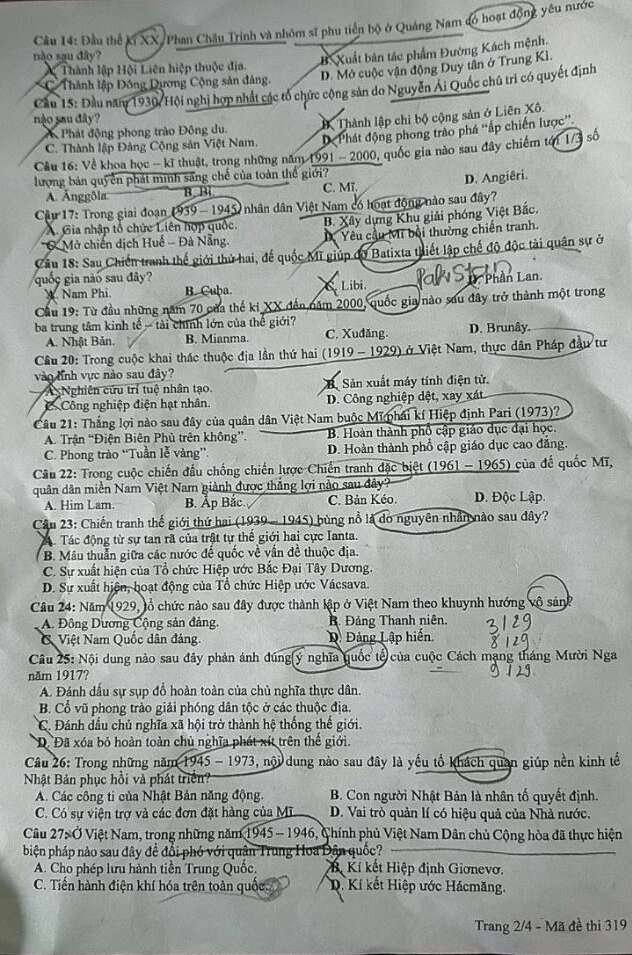 Câu 14: Đầu thế kỉ XX, Phan Châu Trinh và nhóm sĩ phu tiến bộ ở Quảng Nam có hoạt động yêu nước
nào sau đây?
A. Thành lập Hội Liên hiệp thuộc địa. B. Xuất bản tác phẩm Đường Kách mệnh.
C. Thành lập Đông Dương Cộng sản đảng. D. Mở cuộc vận động Duy tân ở Trung Kì.
Câu 15: Đầu năm 1930, Hội nghị hợp nhất các tổ chức cộng sản do Nguyễn Ái Quốc chủ trì có quyết định
nào sau đây?
A. Phát động phong trào Đông du. B. Thành lập chi bộ cộng sản ở Liên Xô.
C. Thành lập Đảng Cộng sản Việt Nam. D. Phát động phong trào phá "ấp chiến lược".
Câu 16: Về khoa học – kĩ thuật, trong những năm 1991 – 2000, quốc gia nào sau đây chiếm tới 1/3 số
lượng bản quyền phát minh sáng chế của toàn thế giới?
A. Ănggôla. B. Bỉ. C. Mĩ. D. Angiêri.
Câu 17: Trong giai đoạn 1939 – 1945, nhân dân Việt Nam có hoạt động nào sau đây?
A. Gia nhập tổ chức Liên hợp quốc. B. Xây dựng Khu giải phóng Việt Bắc.
C. Mở chiến dịch Huế – Đà Nẵng. D. Yêu cầu Mĩ bồi thường chiến tranh.
Câu 18: Sau Chiến tranh thế giới thứ hai, đế quốc Mĩ giúp đỡ Batixta thiết lập chế độ độc tài quân sự ở
quốc gia nào sau đây?
A. Nam Phi. B. Cuba. C. Libi. D. Phần Lan.
Câu 19: Từ đầu những năm 70 của thế kỉ XX đến năm 2000, quốc gia nào sau đây trở thành một trong
ba trung tâm kinh tế – tài chính lớn của thế giới?
A. Nhật Bản. B. Mianma. C. Xuđăng. D. Brunây.
Câu 20: Trong cuộc khai thác thuộc địa lần thứ hai (1919 – 1929) ở Việt Nam, thực dân Pháp đầu tư
vào lĩnh vực nào sau đây?
A. Nghiên cứu trí tuệ nhân tạo. B. Sản xuất máy tính điện tử.
C. Công nghiệp điện hạt nhân. D. Công nghiệp dệt, xay xát.
Câu 21: Thắng lợi nào sau đây của quân dân Việt Nam buộc Mĩ phải kí Hiệp định Pari (1973)?
A. Trận "Điện Biên Phủ trên không". B. Hoàn thành phổ cập giáo dục đại học.
C. Phong trào "Tuần lễ vàng". D. Hoàn thành phổ cập giáo dục cao đẳng.
Câu 22: Trong cuộc chiến đấu chống chiến lược Chiến tranh đặc biệt (1961 – 1965) của đế quốc Mĩ,
quân dân miền Nam Việt Nam giành được thắng lợi nào sau đây?
A. Him Lam. B. Ấp Bắc. C. Bản Kéo. D. Độc Lập.
Câu 23: Chiến tranh thế giới thứ hai (1939 – 1945) bùng nổ là do nguyên nhân nào sau đây?
A. Tác động từ sự tan rã của trật tự thế giới hai cực Ianta.
B. Mâu thuẫn giữa các nước đế quốc về vấn đề thuộc địa.
C. Sự xuất hiện của Tổ chức Hiệp ước Bắc Đại Tây Dương.
D. Sự xuất hiện, hoạt động của Tổ chức Hiệp ước Vácsava.
Câu 24: Năm 1929, tổ chức nào sau đây được thành lập ở Việt Nam theo khuynh hướng vô sản?
A. Đông Dương Cộng sản đảng. B. Đảng Thanh niên. 3/29
C. Việt Nam Quốc dân đảng. D. Đảng Lập hiến. 8/29
Câu 25: Nội dung nào sau đây phản ánh đúng ý nghĩa quốc tế của cuộc Cách mạng tháng Mười Nga
năm 1917? 9/29
A. Đánh dấu sự sụp đổ hoàn toàn của chủ nghĩa thực dân.
B. Cổ vũ phong trào giải phóng dân tộc ở các thuộc địa.
C. Đánh dấu chủ nghĩa xã hội trở thành hệ thống thế giới.
D. Đã xóa bỏ hoàn toàn chủ nghĩa phát xít trên thế giới.
Câu 26: Trong những năm 1945 - 1973, nội dung nào sau đây là yếu tố khách quan giúp nền kinh tế
Nhật Bản phục hồi và phát triển?
A. Các công ti của Nhật Bản năng động. B. Con người Nhật Bản là nhân tố quyết định.
C. Có sự viện trợ và các đơn đặt hàng của Mĩ. D. Vai trò quản lí có hiệu quả của Nhà nước.
Câu 27: Ở Việt Nam, trong những năm 1945 – 1946, Chính phủ Việt Nam Dân chủ Cộng hòa đã thực hiện
biện pháp nào sau đây để đối phó với quân Trung Hoa Dân quốc?
A. Cho phép lưu hành tiền Trung Quốc. B. Kí kết Hiệp định Giơnevơ.
C. Tiến hành điện khí hóa trên toàn quốc. D. Kí kết Hiệp ước Hácmăng.
Trang 2/4 - Mã đề thi 319